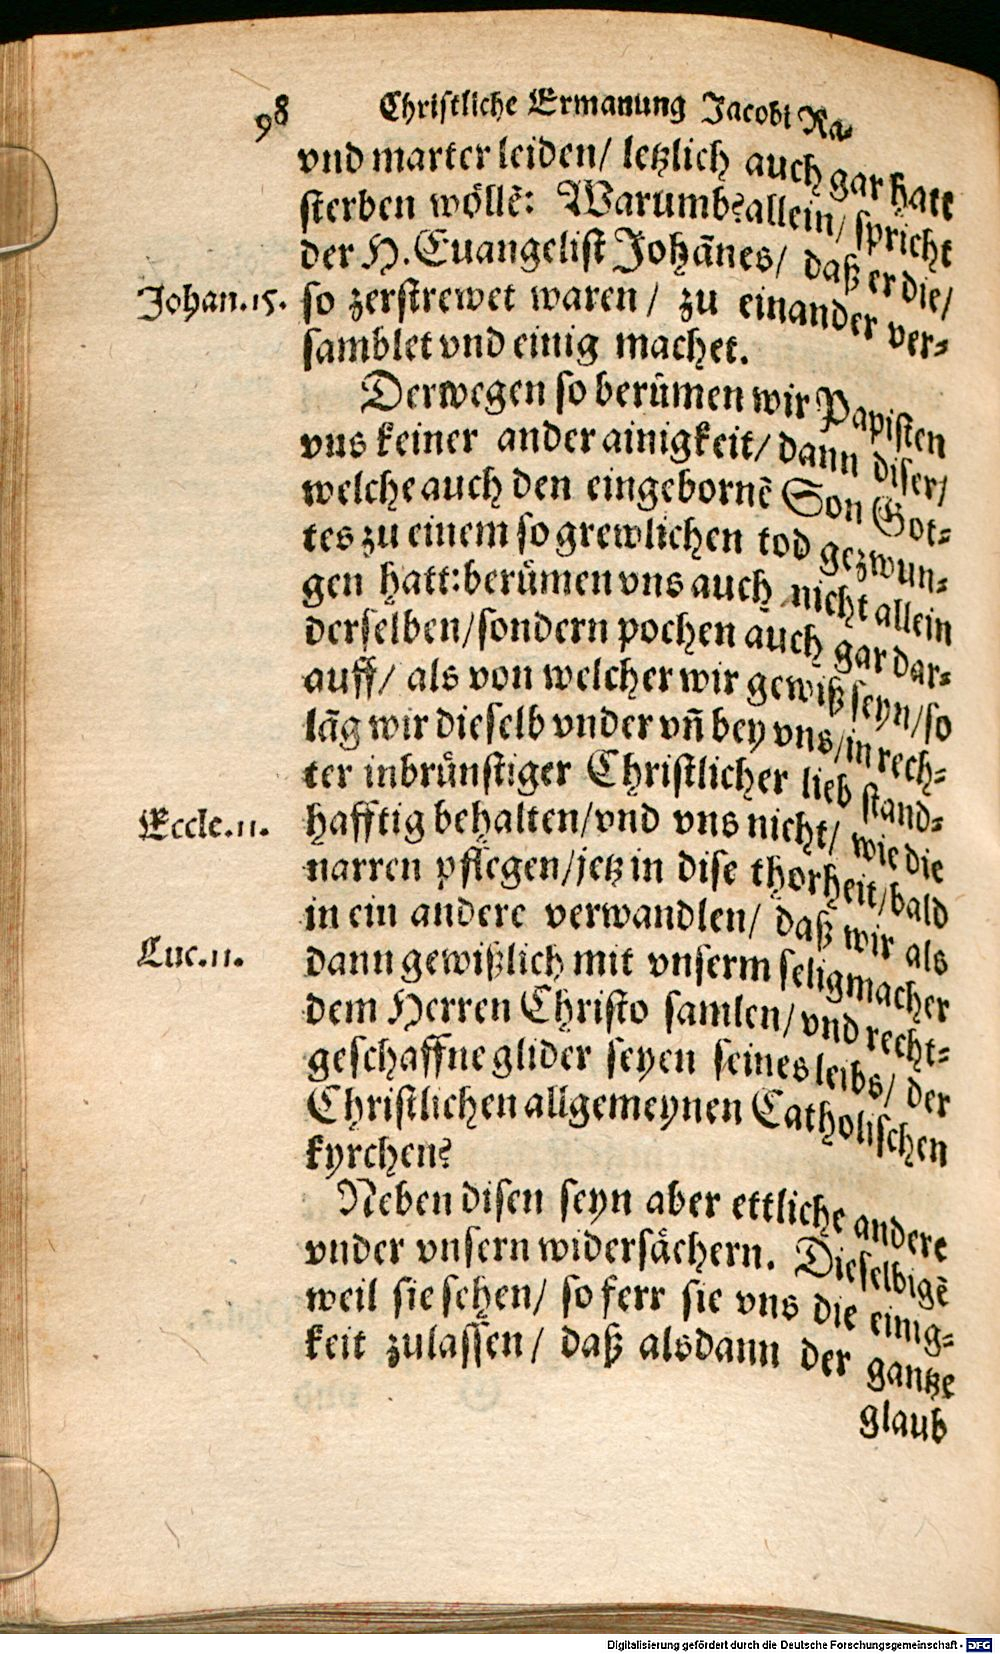 98 Christliche Ermanung Jacobi Ra-
vnd marter leiden/ letzlich auch gar hatt
sterben wöllē: Warumb? allein/ spricht
der H. Euangelist Johānes/ daß er die/
Johan. 15. so zerstrewet waren/ zu einander ver-
samblet vnd einig machet.
Derwegen so berümen wir Papisten
vns keiner ander ainigkeit/ dann diser/
welche auch den eingebornē Son Got-
tes zu einem so grewlichen tod gezwun-
gen hatt: berümen vns auch nicht allein
derselben/ sondern pochen auch gar dar-
auff/ als von welcher wir gewiß seyn/ so
lāg wir dieselb vnder vñ bey vns/ in rech-
ter inbrünstiger Christlicher lieb stand-
Eccle. 11. hafftig behalten/ vnd vns nicht/ wie die
narren pflegen/ jetz in dise thorheit/ bald
in ein andere verwandlen/ daß wir als
Luc. 11. dann gewißlich mit vnserm seligmacher
dem Herren Christo samlen/ vnd recht-
geschaffne glider seyen seines leibs/ der
Christlichen allgemeynen Catholischen
kyrchen?
Neben disen seyn aber ettliche andere
vnder vnsern widersächern. Dieselbigē
weil sie sehen/ so ferr sie vns die einig-
keit zulassen/ daß alsdann der gantze
glaub
Digitalisierung gefördert durch die Deutsche Forschungsgemeinschaft - DFG